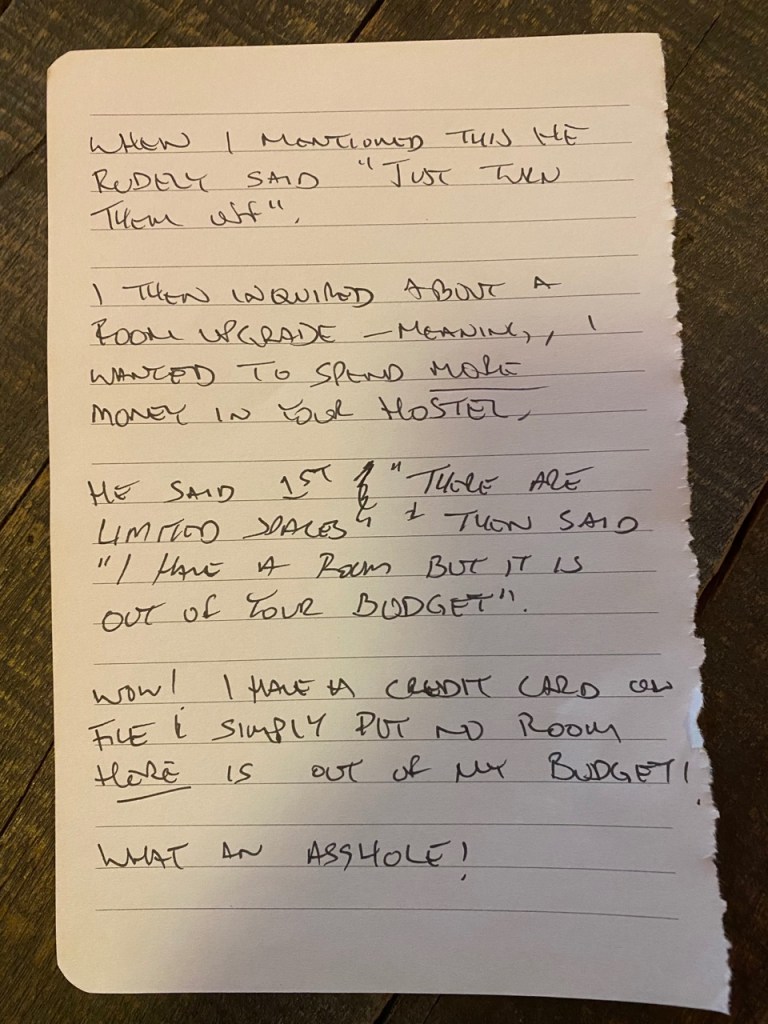 WHEN I MENTIONED THIS HE
RUDELY SAID "JUST TURN
THEM OFF".
I THEN INQUIRED ABOUT A
ROOM UPGRADE – MEANING, I
WANTED TO SPEND MORE
MONEY IN YOUR HOSTEL,
HE SAID 1ST "THERE ARE
LIMITED SPACES" & THEN SAID
"I HAVE A ROOM BUT IT IS
OUT OF YOUR BUDGET".
WOW! I HAVE A CREDIT CARD ON
FILE & SIMPLY PUT NO ROOM
HERE IS OUT OF MY BUDGET!
WHAT AN ASSHOLE!